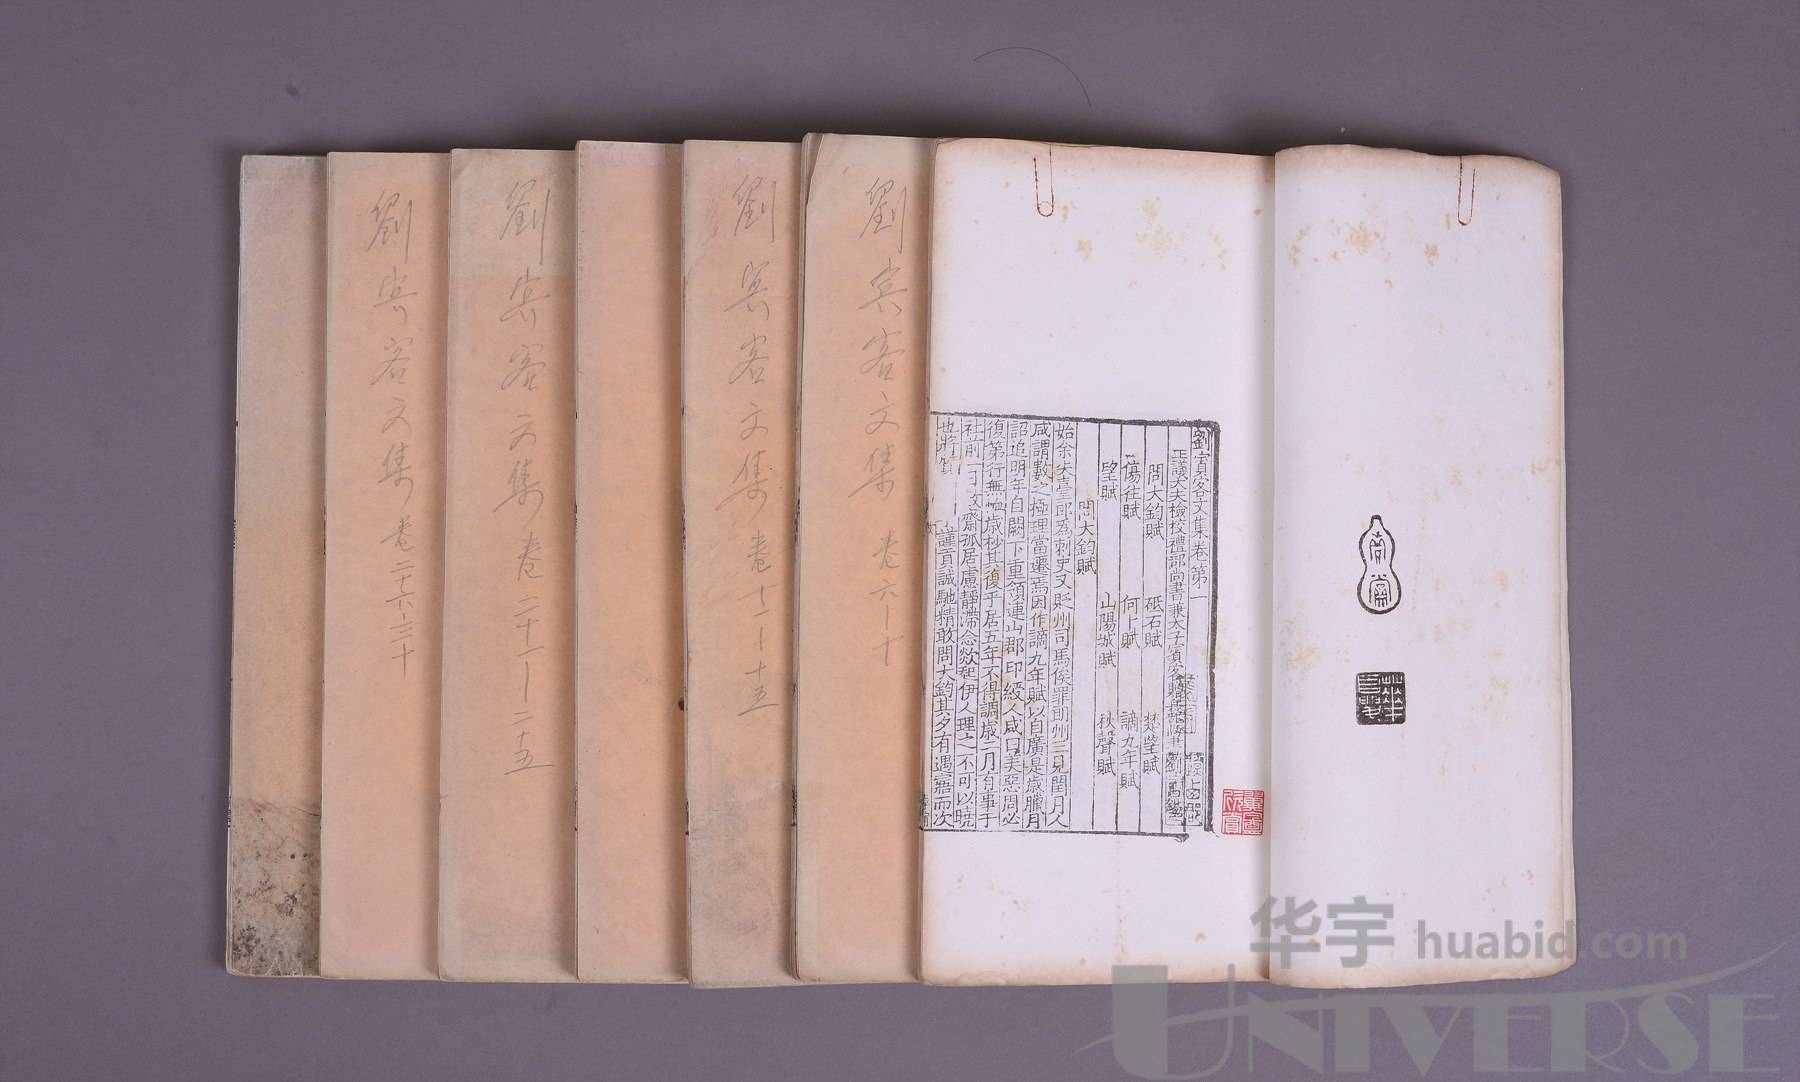 劉賓客文集卷第一
正議大夫檢校禮部尚書兼太子賓客贈兵部尚書劉禹錫
問大鈞賦 砥石賦 楚望賦
傷往賦 何卜賦 謫九年賦
望賦 山陽城賦 秋聲賦
問大鈞賦
始余失臺郎為刺史又貶州司馬俟罪朗州三見閏月人
咸謂數之極理當遷焉因作謫九年賦以自廣是歲臘月
詔追明年自闕下重領連山郡印綬人咸曰美惡周必
復第行無恤歲杪其復乎居五年不得調歲二月有事于
社前一日致齋孤居慮靜滯念欻起伊人理之不可以曉
也將質 謹貢誠馳精敢問大鈞其夕有遇寤而次
劉賓客文集 卷六—十
劉賓客文集 卷十一—十五
劉賓客文集 卷二十一—二十五
劉賓客文集 卷二十六—三十
华宇 huabid.com
UNIVERSE